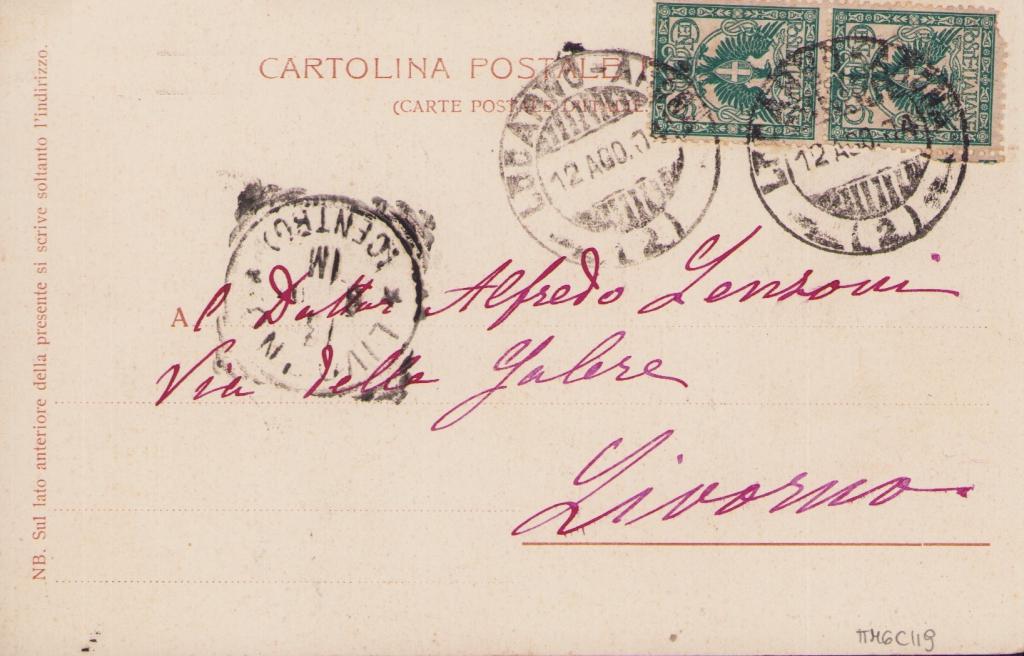 CARTOLINA POSTALE
(CARTE POSTALE D'ITALIE
POSTE ITALIANE
12 AGO. 04
(2)
12 AGO. 04
(2)
LIVORNO
(CENTRO)
Al Dottor Alfredo Lenzoni
Via delle Galere
Livorno
NB. Sul lato anteriore della presente si scrive soltanto l'indirizzo.
TM6C119